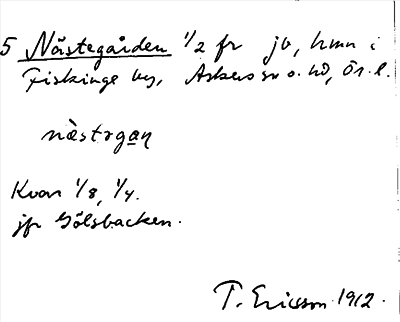 5 Nästegården 1/2 fr jo, hmn i
Fiskinge by, Askers sn o. hd, Ör. l.
nästrgaṉ
Kvar 1/8, 1/4.
jfr Gölsbacken.
T. Ericsson 1912.